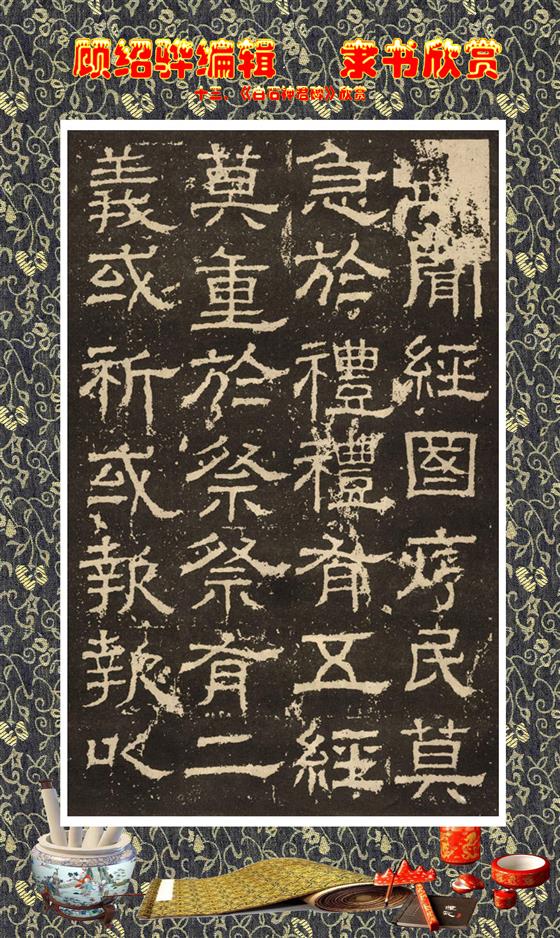 顾绍骅编辑 隶书欣赏
十三、《白石神君碑》欣赏
聞經國序民莫
急於禮禮有五經
莫重於祭祭有二
義或祈或報報以